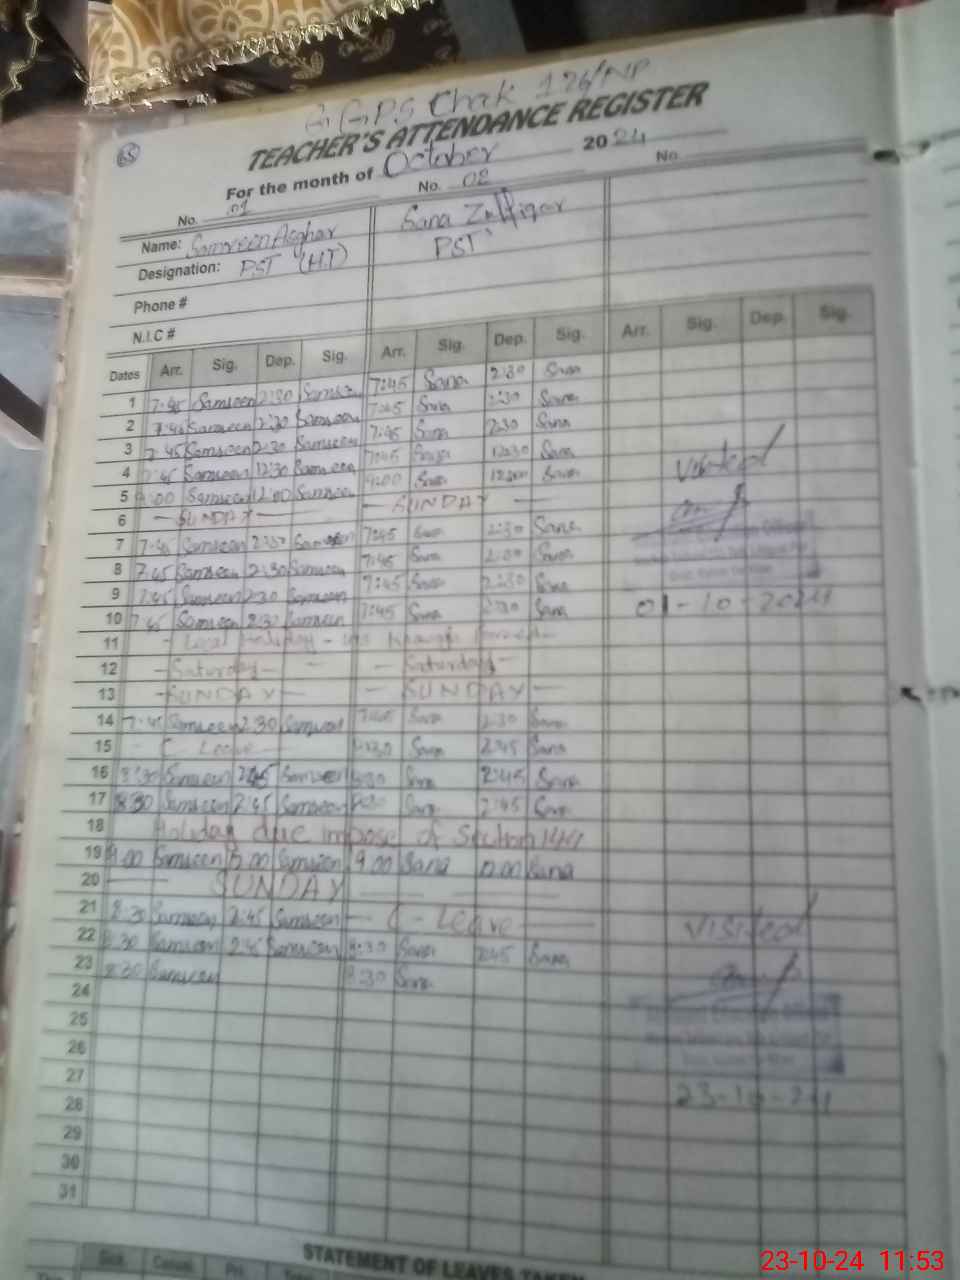 G G P S Chak 126/NP
65
TEACHER'S ATTENDANCE REGISTER
For the month of October 2024
No. 01 No. 02 No.
Name: Samreen Asghar Sana Zulfiqar
Designation: PST (H.T) PST
Phone #
N.I.C #
Dates Arr. Sig. Dep. Sig. Arr. Sig. Dep. Sig. Arr. Sig. Dep. Sig.
1 7:45 Samreen 2:30 Samreen 7:45 Sana 2:30 Sana
2 7:45 Samreen 2:30 Samreen 7:45 Sana 2:30 Sana
3 7:45 Samreen 2:30 Samreen 7:45 Sana 2:30 Sana
4 7:45 Samreen 12:30 Samreen 7:45 Sana 12:30 Sana
5 9:00 Samreen 12:00 Samreen 9:00 Sana 12:00 Sana
6 - SUNDAY - - SUNDAY -
7 7:45 Samreen 2:30 Samreen 7:45 Sana 2:30 Sana
8 7:45 Samreen 2:30 Samreen 7:45 Sana 2:30 Sana
9 7:45 Samreen 2:30 Samreen 7:45 Sana 2:30 Sana
10 7:45 Samreen 2:30 Samreen 7:45 Sana 2:30 Sana
11 - Local Holiday -
12 - Saturday - - Saturday -
13 - SUNDAY - - SUNDAY -
14 7:45 Samreen 2:30 Samreen 7:45 Sana 2:30 Sana
15 - C Leave - 8:30 Sana 2:45 Sana
16 8:30 Samreen 2:45 Samreen 8:30 Sana 2:45 Sana
17 8:30 Samreen 2:45 Samreen 8:30 Sana 2:45 Sana
18 Holiday due impose of Section 144
19 9:00 Samreen Samreen 9:00 Sana Sana
20 SUNDAY
21 8:30 Samreen 2:45 Samreen - C - Leave -
22 8:30 Samreen 2:45 Samreen 8:30 Sana 2:45 Sana
23 8:30 Samreen 8:30 Sana
24
25
26
27
28
29
30
31
Visited
01-10-2024
Visited
23-10-24
STATEMENT OF LEAVES TAKEN
23-10-24 11:53